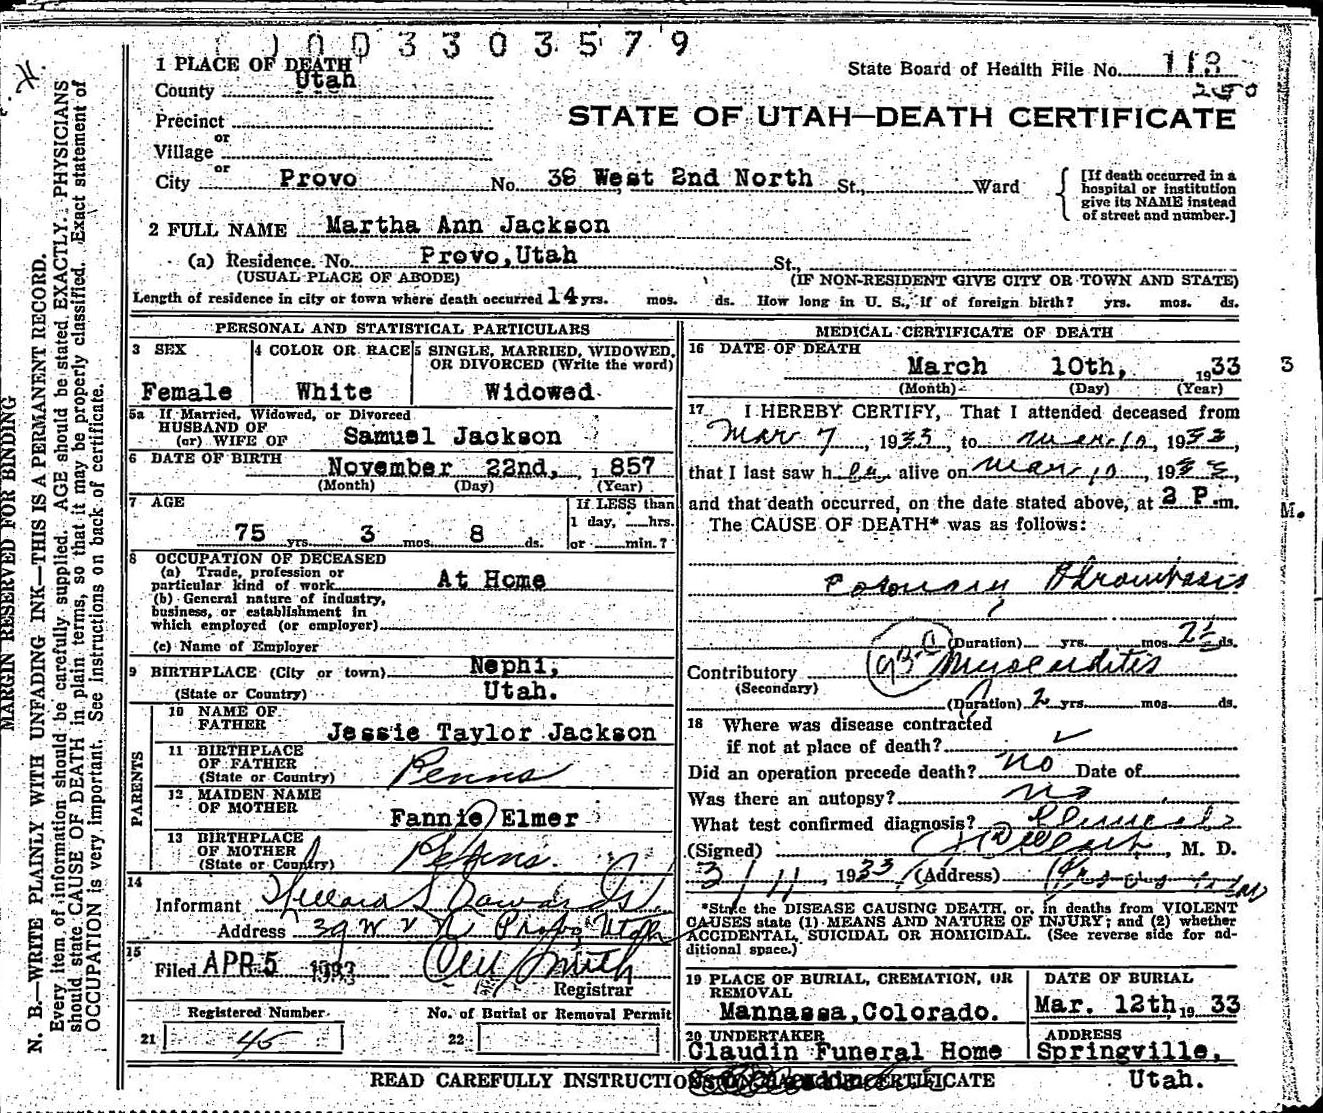 003303579
1 PLACE OF DEATH
State Board of Health File No. 118
County Utah
250
STATE OF UTAH—DEATH CERTIFICATE
Precinct
or
Village
or
City Provo No. 38 West 2nd North St., Ward
[If death occurred in a hospital or institution give its NAME instead of street and number.]
2 FULL NAME Martha Ann Jackson
(a) Residence. No. Provo, Utah St.,
(USUAL PLACE OF ABODE) (IF NON-RESIDENT GIVE CITY OR TOWN AND STATE)
Length of residence in city or town where death occurred 14 yrs. mos. ds. How long in U. S., if of foreign birth? yrs. mos. ds.
PERSONAL AND STATISTICAL PARTICULARS
3 SEX
Female
4 COLOR OR RACE
White
5 SINGLE, MARRIED, WIDOWED,
OR DIVORCED (Write the word)
Widowed
5a If Married, Widowed, or Divorced
HUSBAND OF
(or) WIFE OF Samuel Jackson
6 DATE OF BIRTH November 22nd, 1857
(Month) (Day) (Year)
7 AGE
75 yrs. 3 mos. 8 ds.
If LESS than
1 day, hrs.
or min.?
8 OCCUPATION OF DECEASED
(a) Trade, profession or
particular kind of work At Home
(b) General nature of industry,
business, or establishment in
which employed (or employer)
(c) Name of Employer
9 BIRTHPLACE (City or town) Nephi,
(State or Country) Utah.
PARENTS
10 NAME OF
FATHER Jessie Taylor Jackson
11 BIRTHPLACE
OF FATHER
(State or Country) Penns
12 MAIDEN NAME
OF MOTHER Fannie Elmer
13 BIRTHPLACE
OF MOTHER
(State or Country) Penns.
14
Informant
Address 39 W 2 N Provo Utah
15
Filed APR 5 1933 Smith
Registrar
Registered Number
21 45
No. of Burial or Removal Permit
22
MEDICAL CERTIFICATE OF DEATH
16 DATE OF DEATH
March 10th, 1933
(Month) (Day) (Year)
17 I HEREBY CERTIFY, That I attended deceased from
Mar 7, 1933, to Mar 10, 1933,
that I last saw her alive on Mar 10, 1933,
and that death occurred, on the date stated above, at 2 P.m.
The CAUSE OF DEATH* was as follows:
Coronary Thrombosis
(Duration) yrs. mos. 2½ ds.
Contributory Myocarditis
(Secondary)
(Duration) 2 yrs. mos. ds.
18 Where was disease contracted
if not at place of death?
Did an operation precede death? No Date of
Was there an autopsy? No
What test confirmed diagnosis? Clinical
(Signed) , M. D.
3/11, 1933 (Address)
*State the DISEASE CAUSING DEATH, or, in deaths from VIOLENT
CAUSES state (1) MEANS AND NATURE OF INJURY; and (2) whether
ACCIDENTAL, SUICIDAL OR HOMICIDAL. (See reverse side for ad-
ditional space.)
19 PLACE OF BURIAL, CREMATION, OR
REMOVAL
Mannassa, Colorado.
DATE OF BURIAL
Mar. 12th, 19 33
20 UNDERTAKER
Claudin Funeral Home
ADDRESS
Springville,
Utah.
READ CAREFULLY INSTRUCTIONS ON BACK OF CERTIFICATE
MARGIN RESERVED FOR BINDING
N. B.—WRITE PLAINLY WITH UNFADING INK—THIS IS A PERMANENT RECORD.
Every item of information should be carefully supplied. AGE should be stated EXACTLY. PHYSICIANS
should state CAUSE OF DEATH in plain terms, so that it may be properly classified. Exact statement of
OCCUPATION is very important. See instructions on back of certificate.
3
M.